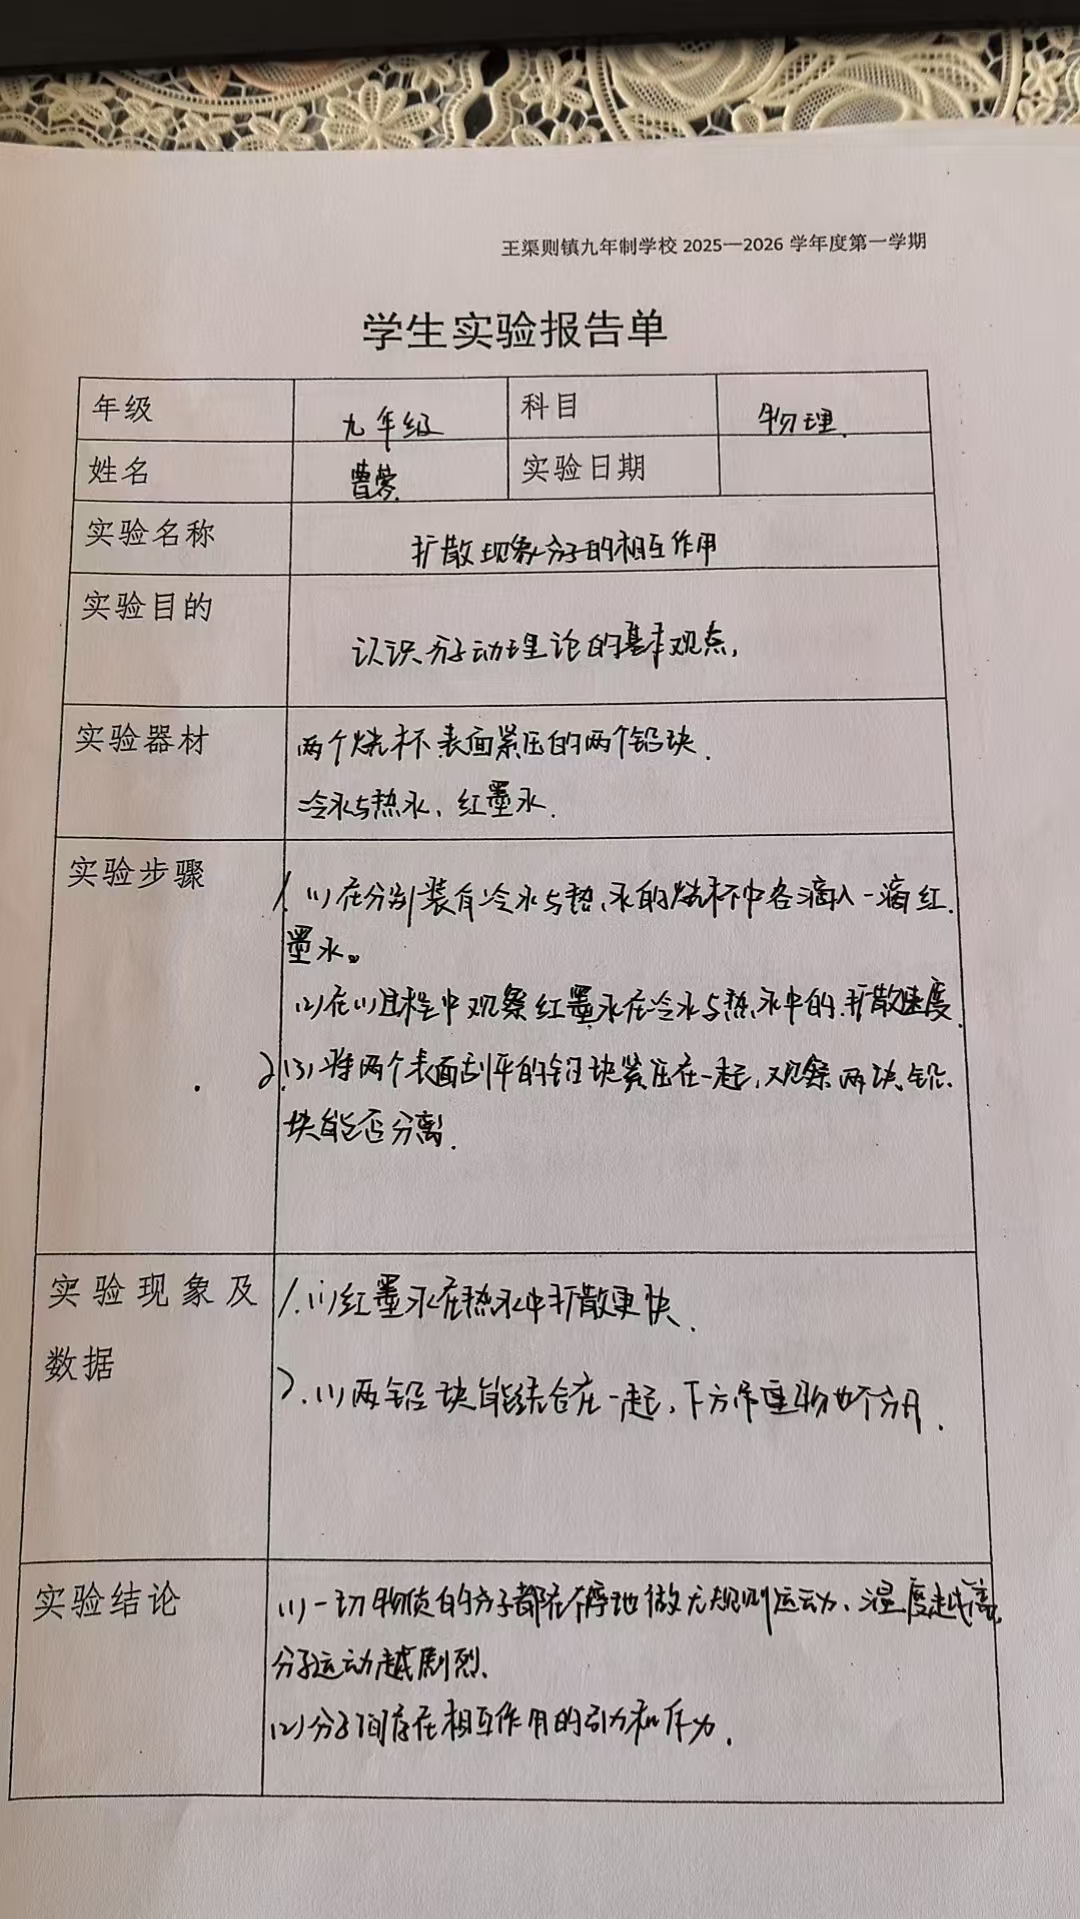 王渠则镇九年制学校 2025—2026 学年度第一学期
学生实验报告单
年级 九年级 科目 物理.
姓名 曹 实验日期
实验名称 扩散现象分子的相互作用
实验目的 认识分子动理论的基本观点,
实验器材 两个烧杯 表面紧压的两个铅块.
冷水与热水, 红墨水.
实验步骤 1. (1)在分别装有冷水与热水的烧杯中各滴入一滴红.
墨水。
(2)在(1)过程中观察红墨水在冷水与热水中的扩散速度.
2.(3)将两个表面刮平的铅块紧压在一起, 观察两块铅.
块能否分离.
实验现象及 1.(1)红墨水在热水中扩散更快.
数据
2.(1)两铅块能结合在一起, 下方吊重物也不分开.
实验结论 (1)一切物质的分子都在不停地做无规则运动、温度越高,
分子运动越剧烈.
(2)分子间存在相互作用的引力和斥力.